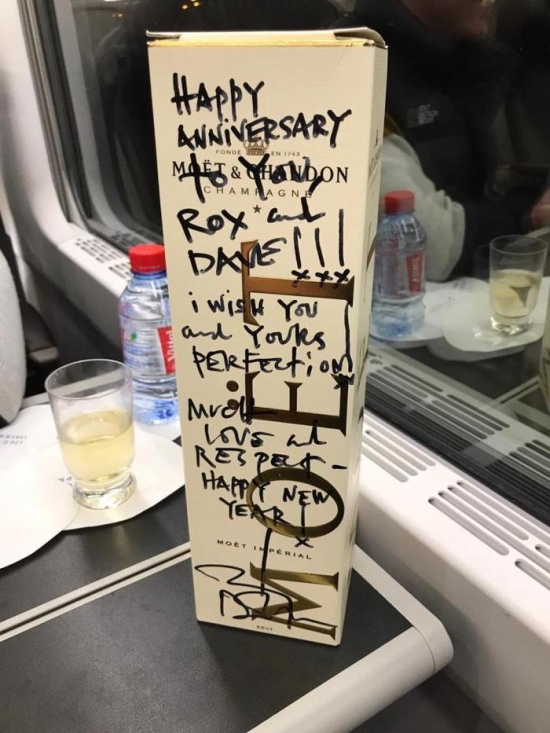 HAPPY
ANNIVERSARY
FONDÉ EN 1743
MOËT & CHANDON
TO YOU,
CHAMPAGNE
ROX and
DAVE!!!
xxx
i WiSH YOU
and YOURS
PERFECTiON!
MUCH
LOVE and
RESPECT-
HAPPY NEW
YEAR!
x
MOËT IMPÉRIAL
BRUT
MOËT